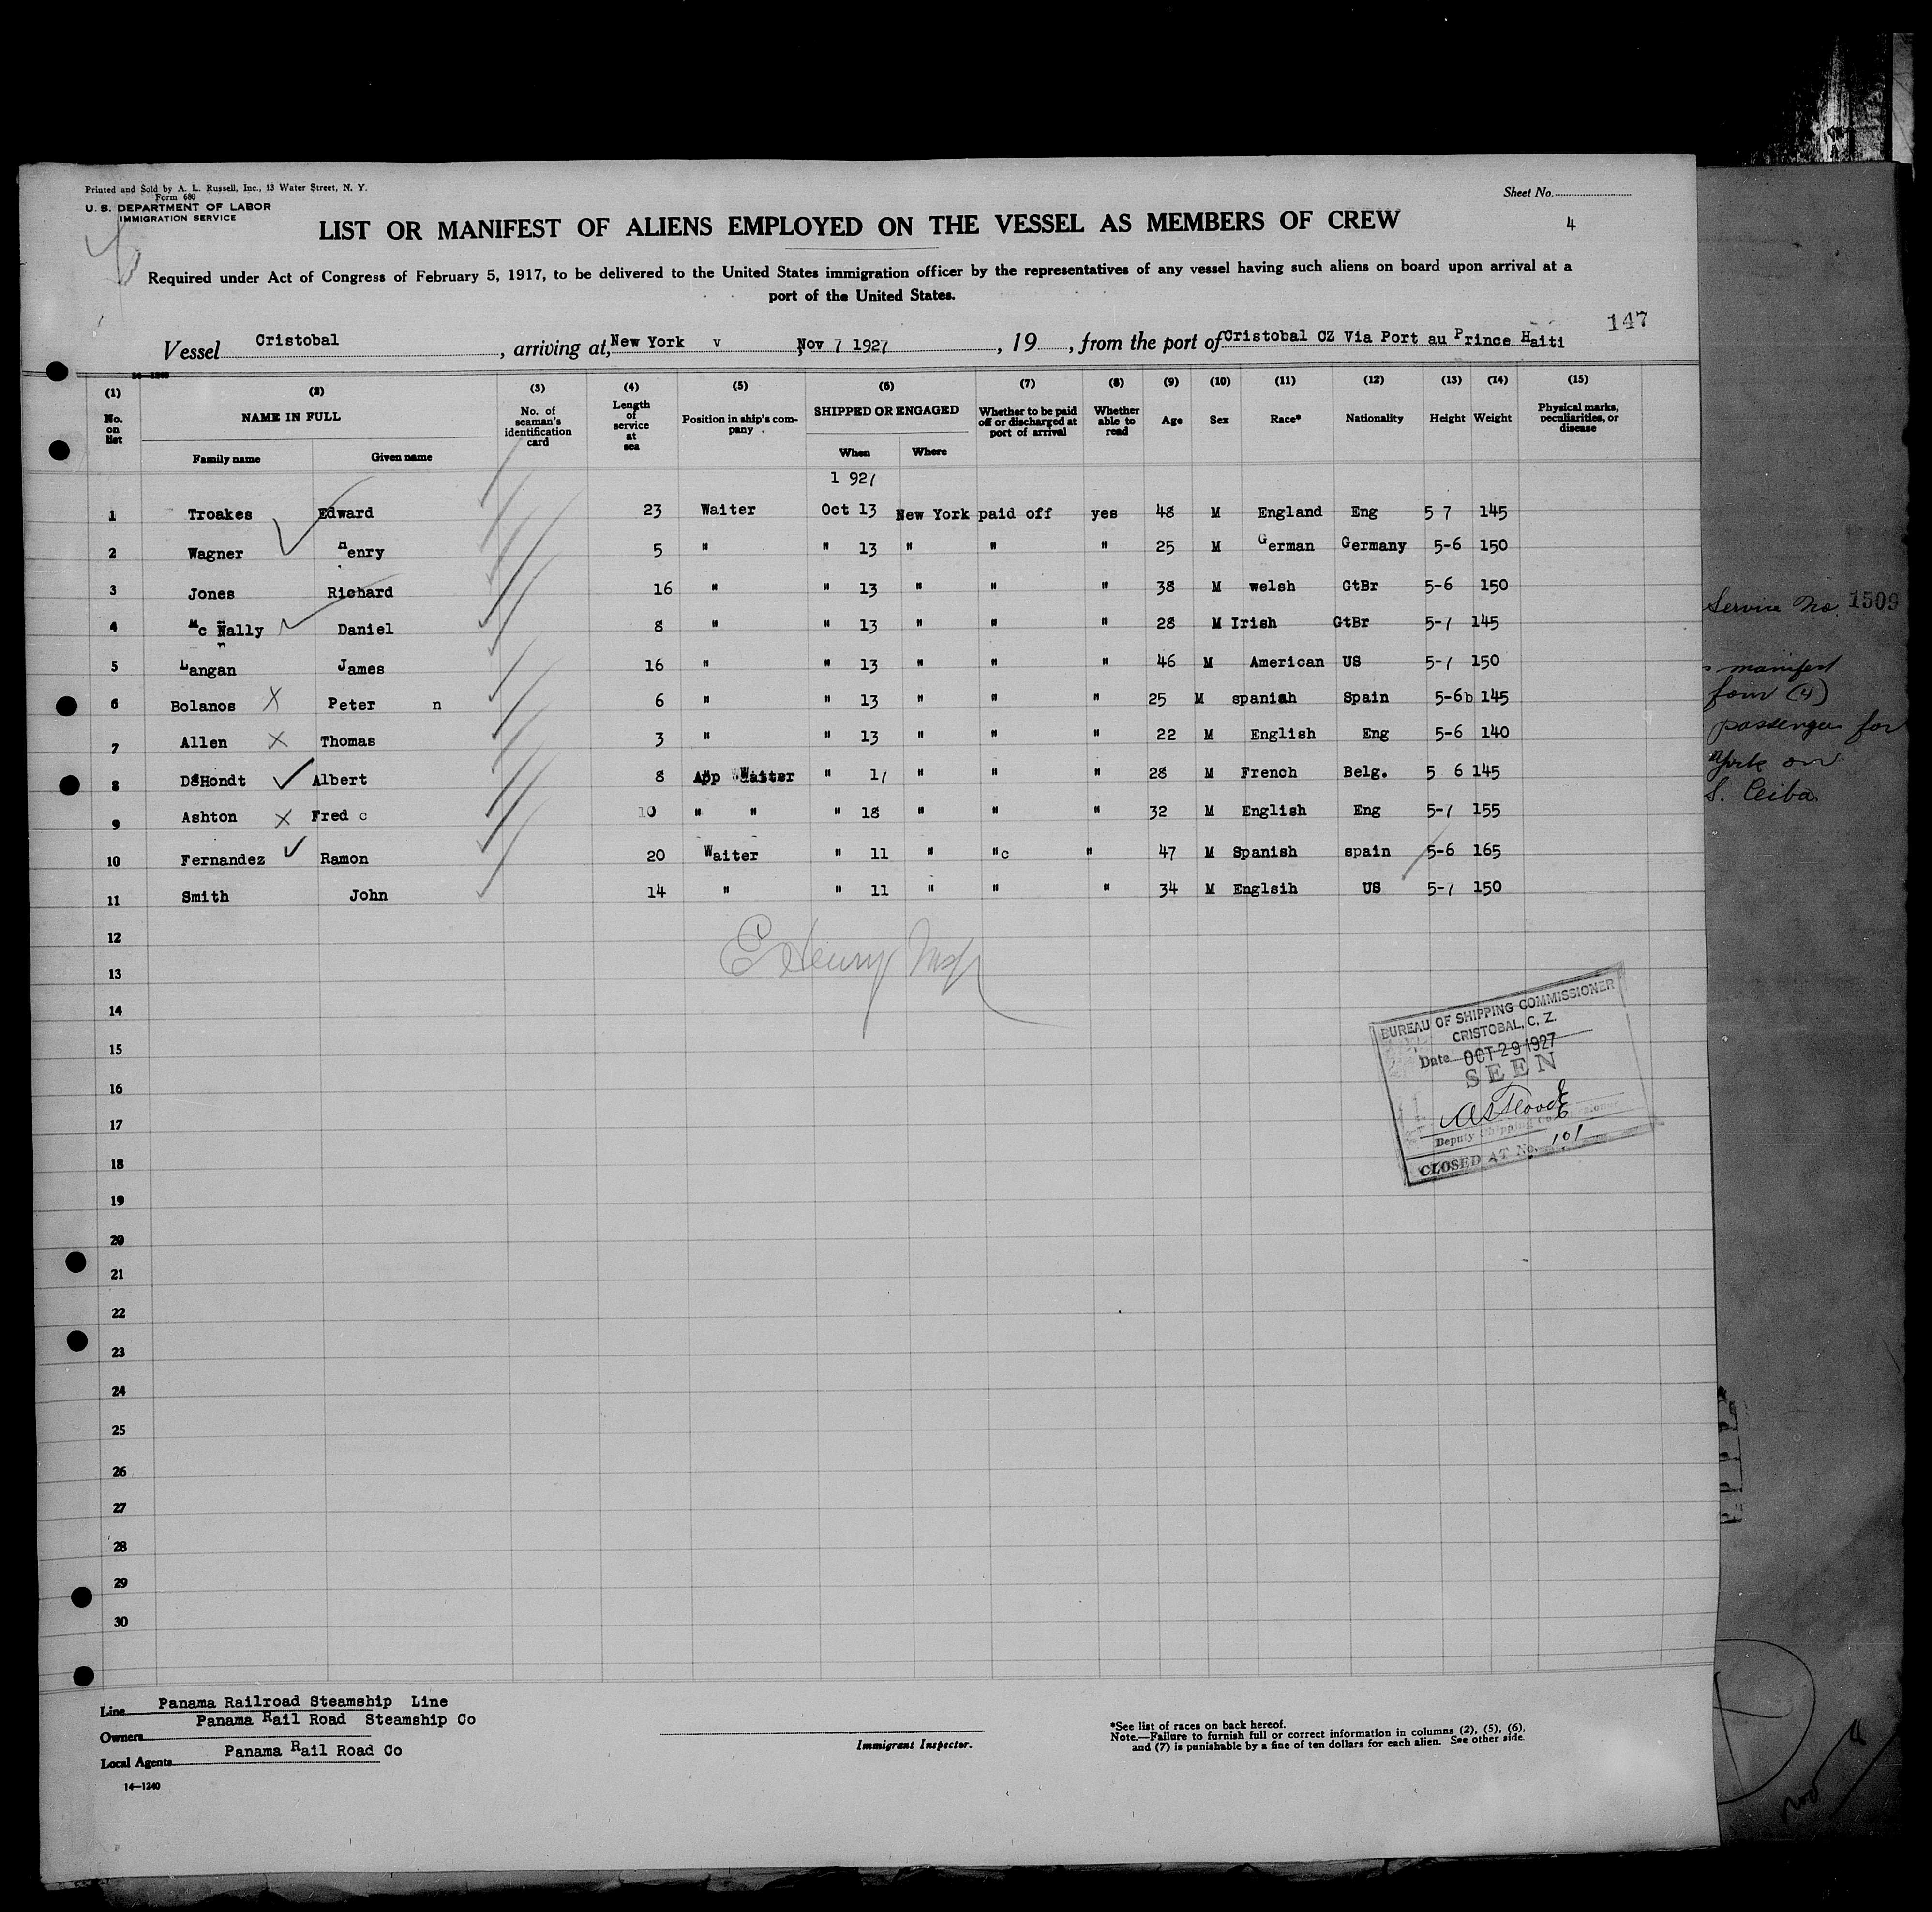 Printed and Sold by A. L. Russell, Inc., 13 Water Street, N. Y.
Form 680
U. S. DEPARTMENT OF LABOR
IMMIGRATION SERVICE
Sheet No.
4
LIST OR MANIFEST OF ALIENS EMPLOYED ON THE VESSEL AS MEMBERS OF CREW
Required under Act of Congress of February 5, 1917, to be delivered to the United States immigration officer by the representatives of any vessel having such aliens on board upon arrival at a
port of the United States.
147
Vessel Cristobal , arriving at, New York v Nov 7 1927 , 19 , from the port of Cristobal CZ Via Port au Prince Haiti
(1) (2) (3) (4) (5) (6) (7) (8) (9) (10) (11) (12) (13) (14) (15)
No. on list NAME IN FULL No. of seaman's identification card Length of service at sea Position in ship's company SHIPPED OR ENGAGED Whether to be paid off or discharged at port of arrival Whether able to read Age Sex Race* Nationality Height Weight Physical marks, peculiarities, or disease
Family name Given name When Where
1 927
1 Troakes Edward 23 Waiter Oct 13 New York paid off yes 48 M England Eng 5 7 145
2 Wagner Henry 5 " " 13 " " " 25 M German Germany 5-6 150
3 Jones Richard 16 " " 13 " " " 38 M welsh GtBr 5-6 150
4 Mc Nally Daniel 8 " " 13 " " " 28 M Irish GtBr 5-7 145
5 Langan James 16 " " 13 " " " 46 M American US 5-7 150
6 Bolanos X Peter n 6 " " 13 " " " 25 M spanish Spain 5-6b 145
7 Allen X Thomas 3 " " 13 " " " 22 M English Eng 5-6 140
8 DeHondt Albert 8 App Waiter " 17 " " " 28 M French Belg. 5 6 145
9 Ashton X Fred c 10 " " " 18 " " " 32 M English Eng 5-7 155
10 Fernandez Ramon 20 Waiter " 11 " "c " 47 M Spanish spain 5-6 165
11 Smith John 14 " " 11 " " " 34 M Englsih US 5-7 150
12
13
14
15
16
17
18
19
20
21
22
23
24
25
26
27
28
29
30
E Henry Insp
BUREAU OF SHIPPING COMMISSIONER
CRISTOBAL, C. Z.
Date OCT 29 1927
SEEN
Deputy Shipping Commissioner
CLOSED AT No. 101
Line Panama Railroad Steamship Line
Owners Panama Rail Road Steamship Co
Local Agents Panama Rail Road Co
14—1240
Immigrant Inspector.
*See list of races on back hereof.
Note.—Failure to furnish full or correct information in columns (2), (5), (6),
and (7) is punishable by a fine of ten dollars for each alien. See other side.
Service No. 1509
manifest
four (4)
passengers for
York on
S. Ceiba